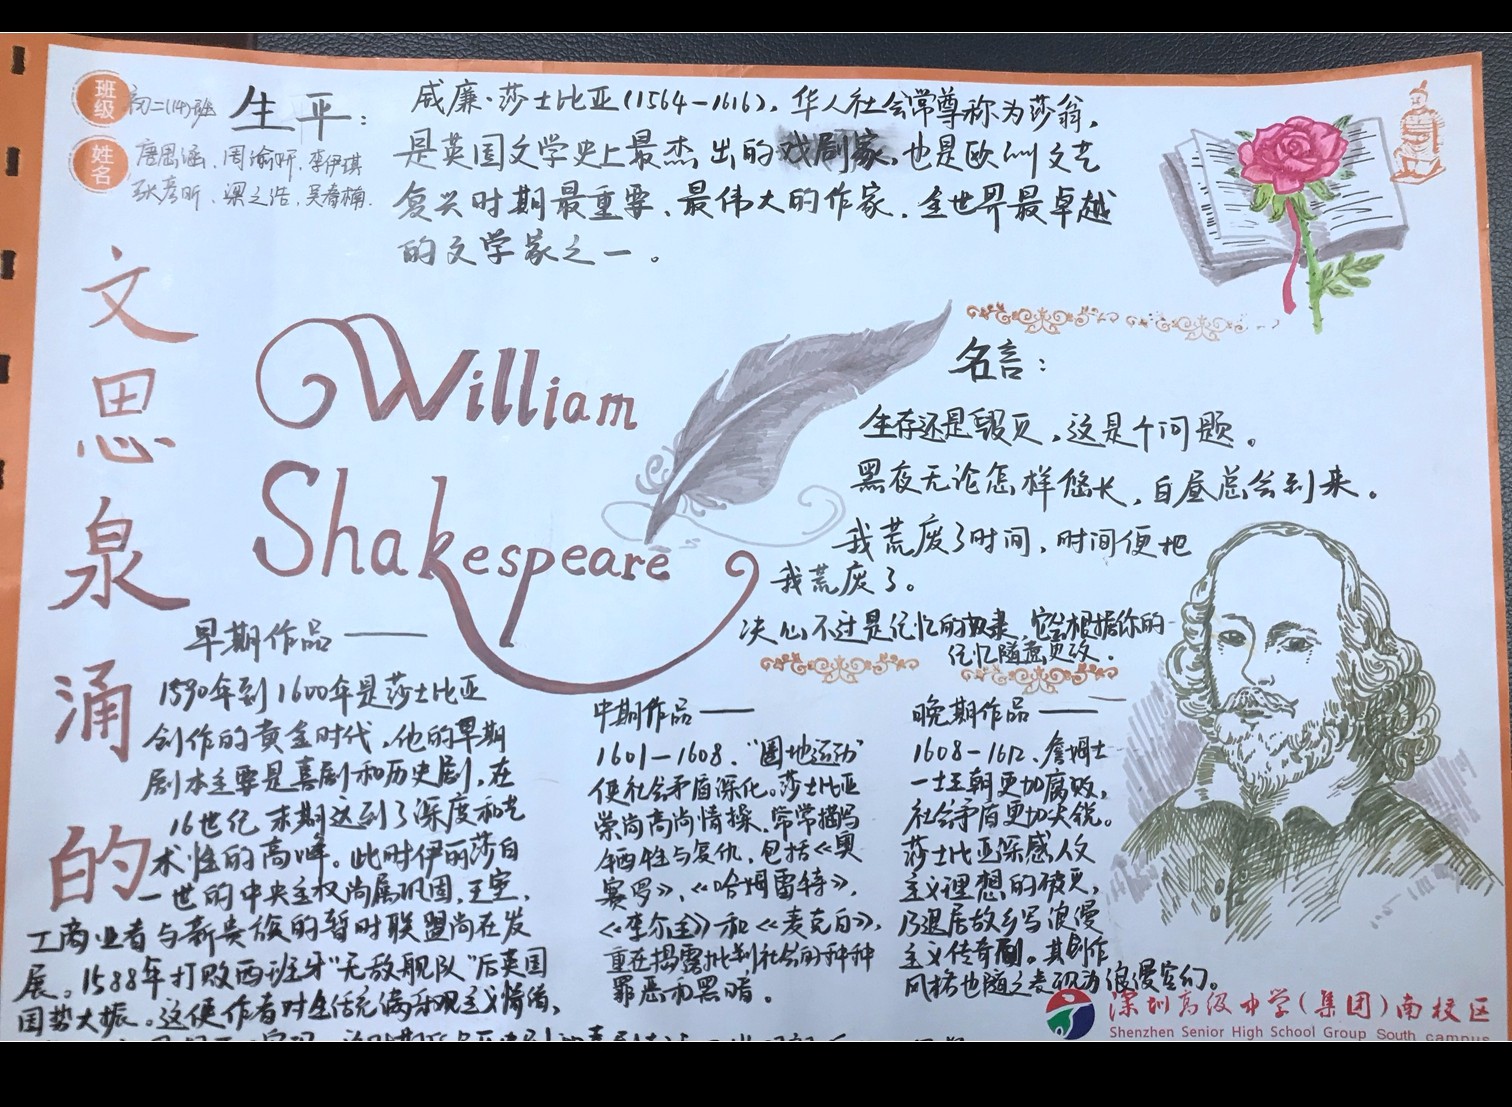 班级
初二(14)班
姓名
唐思涵、周渝妍、李伊琪
耿彦昕、梁之浩、吴春楠.
生平：
威廉·莎士比亚(1564-1616)，华人社会常尊称为莎翁，
是英国文学史上最杰出的戏剧家，也是欧洲文艺
复兴时期最重要、最伟大的作家，全世界最卓越
的文学家之一。
文思泉涌的
William
Shakespeare
名言：
生存还是毁灭，这是个问题。
黑夜无论怎样悠长，白昼总会到来。
我荒废了时间，时间便把
我荒废了。
决心不过是记忆的奴隶，它会根据你的
记忆随意更改.
早期作品——
1590年到1600年是莎士比亚
创作的黄金时代，他的早期
剧本主要是喜剧和历史剧，在
16世纪末期达到了深度和艺
术性的高峰。此时伊丽莎白
一世的中央主权尚属巩固，王室，
工商业者与新贵族的暂时联盟尚在发
展。1588年打败西班牙"无敌舰队"后英国
国势大振。这使作者对生活充满乐观主义情绪，
中期作品——
1601-1608，"圈地运动"
使社会矛盾深化。莎士比亚
崇尚高尚情操，常常描写
牺牲与复仇，包括《奥
赛罗》，《哈姆雷特》，
《李尔王》和《麦克白》，
重在揭露批判社会的种种
罪恶和黑暗。
晚期作品——
1608-1612，詹姆士
一士王朝更加腐败，
社会矛盾更加尖锐。
莎士比亚深感人文
主义理想的破灭，
乃退居故乡写浪漫
主义传奇剧。其创作
风格也随之表现为浪漫空幻。
深圳高级中学(集团)南校区
Shenzhen Senior High School Group South campus